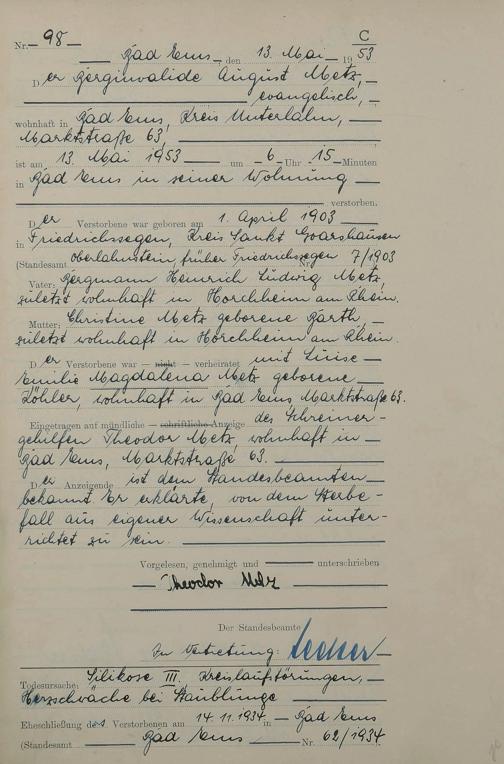 Nr. 98 C
Bad Ems, den 13. Mai 1953
Der Berginvalide August Metz,
evangelisch,
wohnhaft in Bad Ems, Kreis Unterlahn,
Marktstraße 63,
ist am 13. Mai 1953 um 6 Uhr 15 Minuten
in Bad Ems in seiner Wohnung
verstorben.
Der Verstorbene war geboren am 1. April 1903
in Friedrichssegen, Kreis Sankt Goarshausen
(Standesamt Oberlahnstein, früher Friedrichssegen Nr. 7/1903
Vater: Bergmann Heinrich Ludwig Metz,
zuletzt wohnhaft in Horchheim am Rhein.
Mutter: Christine Metz geborene Barth
zuletzt wohnhaft in Horchheim am Rhein.
Der Verstorbene war — nicht — verheiratet mit Luise
Emilie Magdalena Metz geborene
Köhler, wohnhaft in Bad Ems Marktstraße 63.
Eingetragen auf mündliche — schriftliche Anzeige des Schreiner-
gehilfen Theodor Metz, wohnhaft in
Bad Ems, Marktstraße 63.
Der Anzeigende ist dem Standesbeamten
bekannt. Er erklärte, von dem Sterbe-
fall aus eigener Wissenschaft unter-
richtet zu sein.
Vorgelesen, genehmigt und unterschrieben
Theodor Metz
Der Standesbeamte
In Vertretung:
Todesursache: Silikose III. Kreislaufstörungen,
Herzschwäche bei Staublunge
Eheschließung des Verstorbenen am 14.11.1934 in Bad Ems
(Standesamt Bad Ems Nr. 62/1934